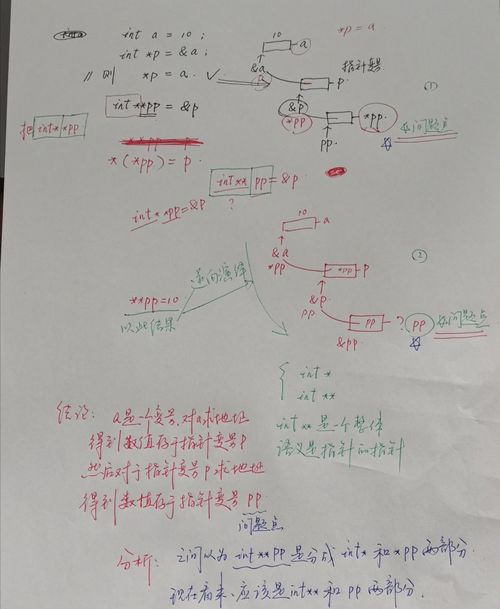 int a = 10;
int *p = &a;
// 则 *p = a. ✓
int **pp = &p
把 int* *pp
*(*pp) = p.
int** pp = &p.
int* *pp = &p ?
10
a
*p = a
&a
p
p.
&p
*pp
pp
*pp.
①
问题点
10
a
&a
*pp
*pp
p
②
&p
pp
pp
&pp
? pp
问题点
逆向演绎
**pp=10
以此结果
int *
int **
int ** 是一个整体
语义是指针的指针
结论: a是一个变量,对a求地址
得到数值存于指针变量P
然后对于指针变量P,求地址
得到数值存于指针变量 PP
问题点
分析: 之前以为 int **pp 是分成 int* 和 *pp 两部分.
现在看来,应该是int** 和 pp 两部分.